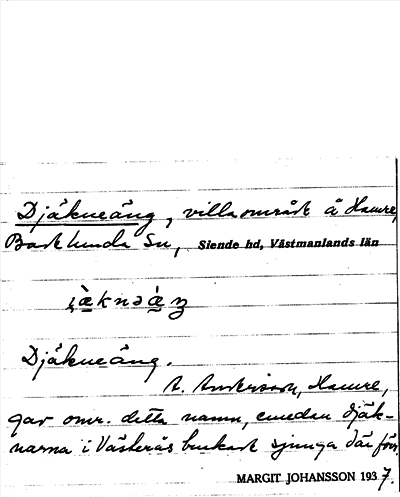 Djäkneäng, villaområde å Hamre,
Badelunda sn, Siende hd, Västmanlands län
Djäkneäng.
A. Andersson, Hamre,
gav omr. detta namn, emedan djäk-
narna i Västerås brukade sjunga där förr
MARGIT JOHANSSON 1937.